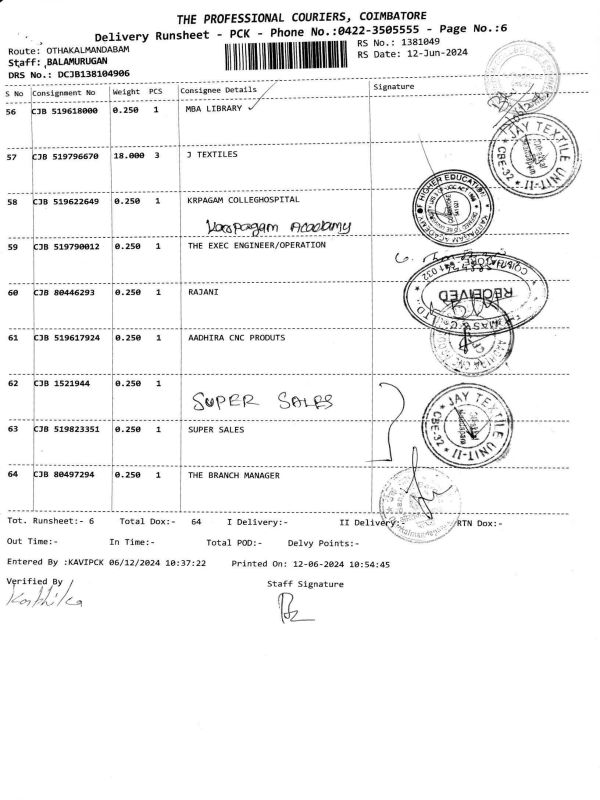 THE PROFESSIONAL COURIERS, COIMBATORE
Delivery Runsheet - PCK - Phone No.:0422-3505555 - Page No.:6
Route: OTHAKALMANDABAM
RS No.: 1381049
Staff: BALAMURUGAN
RS Date: 12-Jun-2024
DRS No.: DCJB138104906
S No Consignment No Weight PCS Consignee Details Signature
56 CJB 519618000 0.250 1 MBA LIBRARY
JAY TEXTILE UNIT-II CBE-32
57 CJB 519796670 18.000 3 J TEXTILES
58 CJB 519622649 0.250 1 KRPAGAM COLLEGHOSPITAL
Karpagam Academy
59 CJB 519790012 0.250 1 THE EXEC ENGINEER/OPERATION
60 CJB 80446293 0.250 1 RAJANI
RECEIVED
61 CJB 519617924 0.250 1 AADHIRA CNC PRODUTS
62 CJB 1521944 0.250 1
SUPER SALES
JAY TEXTILE UNIT-II CBE-32
63 CJB 519823351 0.250 1 SUPER SALES
64 CJB 80497294 0.250 1 THE BRANCH MANAGER
Tot. Runsheet:- 6 Total Dox:- 64 I Delivery:- II Delivery:- RTN Dox:-
Out Time:- In Time:- Total POD:- Delvy Points:-
Entered By :KAVIPCK 06/12/2024 10:37:22 Printed On: 12-06-2024 10:54:45
Verified By Staff Signature